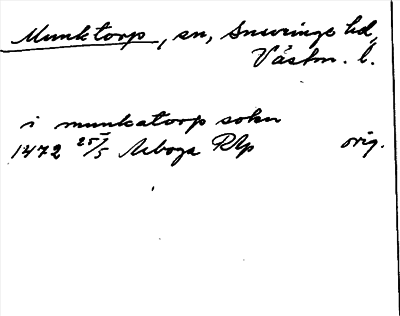 Munktorp, sn, Snevringe hd,
Västm. l.
i munkatorp sokn
1472 25/5 Arboga RAp orig.